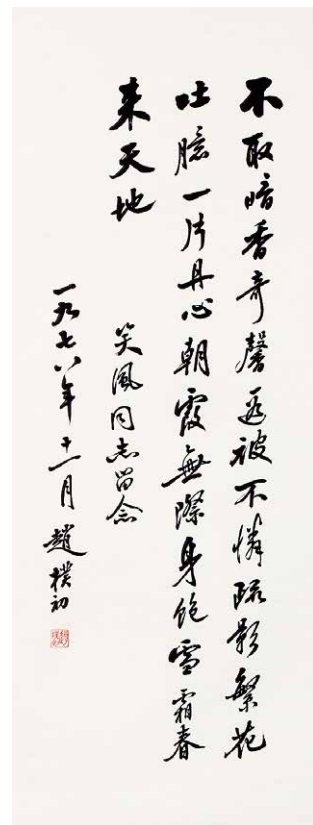 不取暗香奇馨遐被不憐疏影繁花
吐臆一片丹心朝霞無際身飽雪霜春
來天地
笑風同志留念
一九七八年十一月趙樸初